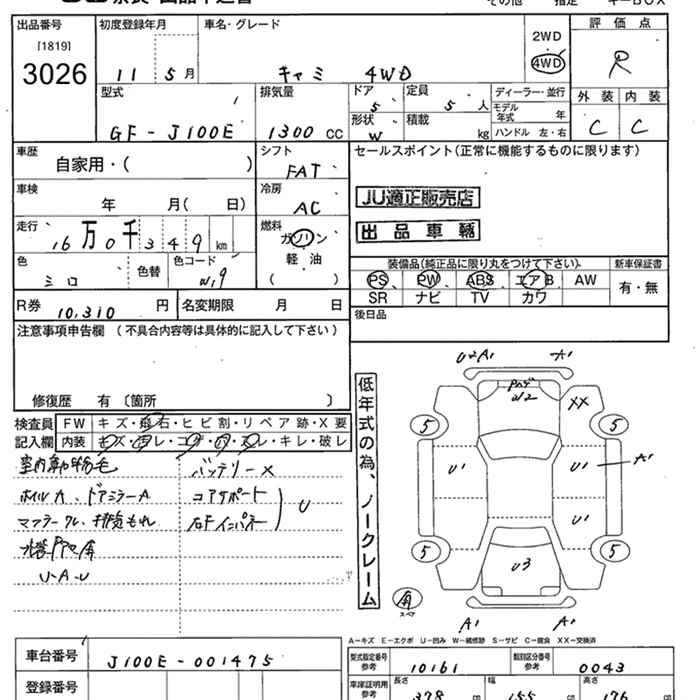 出品番号 初度登録年月 車名・グレード 2WD 評価点
[1819]
3026 11 5月 キャミ 4WD 4WD R
型式 排気量 ドア 5 定員 5人 ディーラー・並行 外装 内装
GF-J100E 1300 CC 形状 W 積載 kg モデル年式 年 C C
ハンドル 左・右
車歴 シフト セールスポイント(正常に機能するものに限ります)
自家用・( ) FAT
車検 冷房 JU適正販売店
年 月( 日) AC
走行 燃料 出品車輌
16万0千349km ガソリン
色 色替 色コード 軽・油 装備品(純正品に限り丸をつけて下さい) 新車保証書
ミロ ( ) PS PW ABS エアB AW 有・無
SR ナビ TV カワ
R券 10,310 円 名変期限 月 日 後日品
注意事項申告欄 (不具合内容等は具体的に記入して下さい)
U2A1 A1
修復歴 有〔箇所 〕 低年式の為、ノークレーム XX
検査員 FW キズ・飛石・ヒビ割・リペア跡・X要 5 5
記入欄 内装 キズ・ヨゴレ・コゲ・穴・スレ・キレ・破レ
バッテリーX U1 U1 A1
ドアミラーA コアサポート U
U1
5 5
U-A-U U3
A1 A1
A-キズ E-エクボ U-凹み W-補修跡 S-サビ C-腐食 XX-交換済
車台番号 J100E-001475 型式指定番号 参考 10161 類別区分番号 参考 0043
登録番号 車庫証明用 参考 長さ 378 幅 155 高さ 176